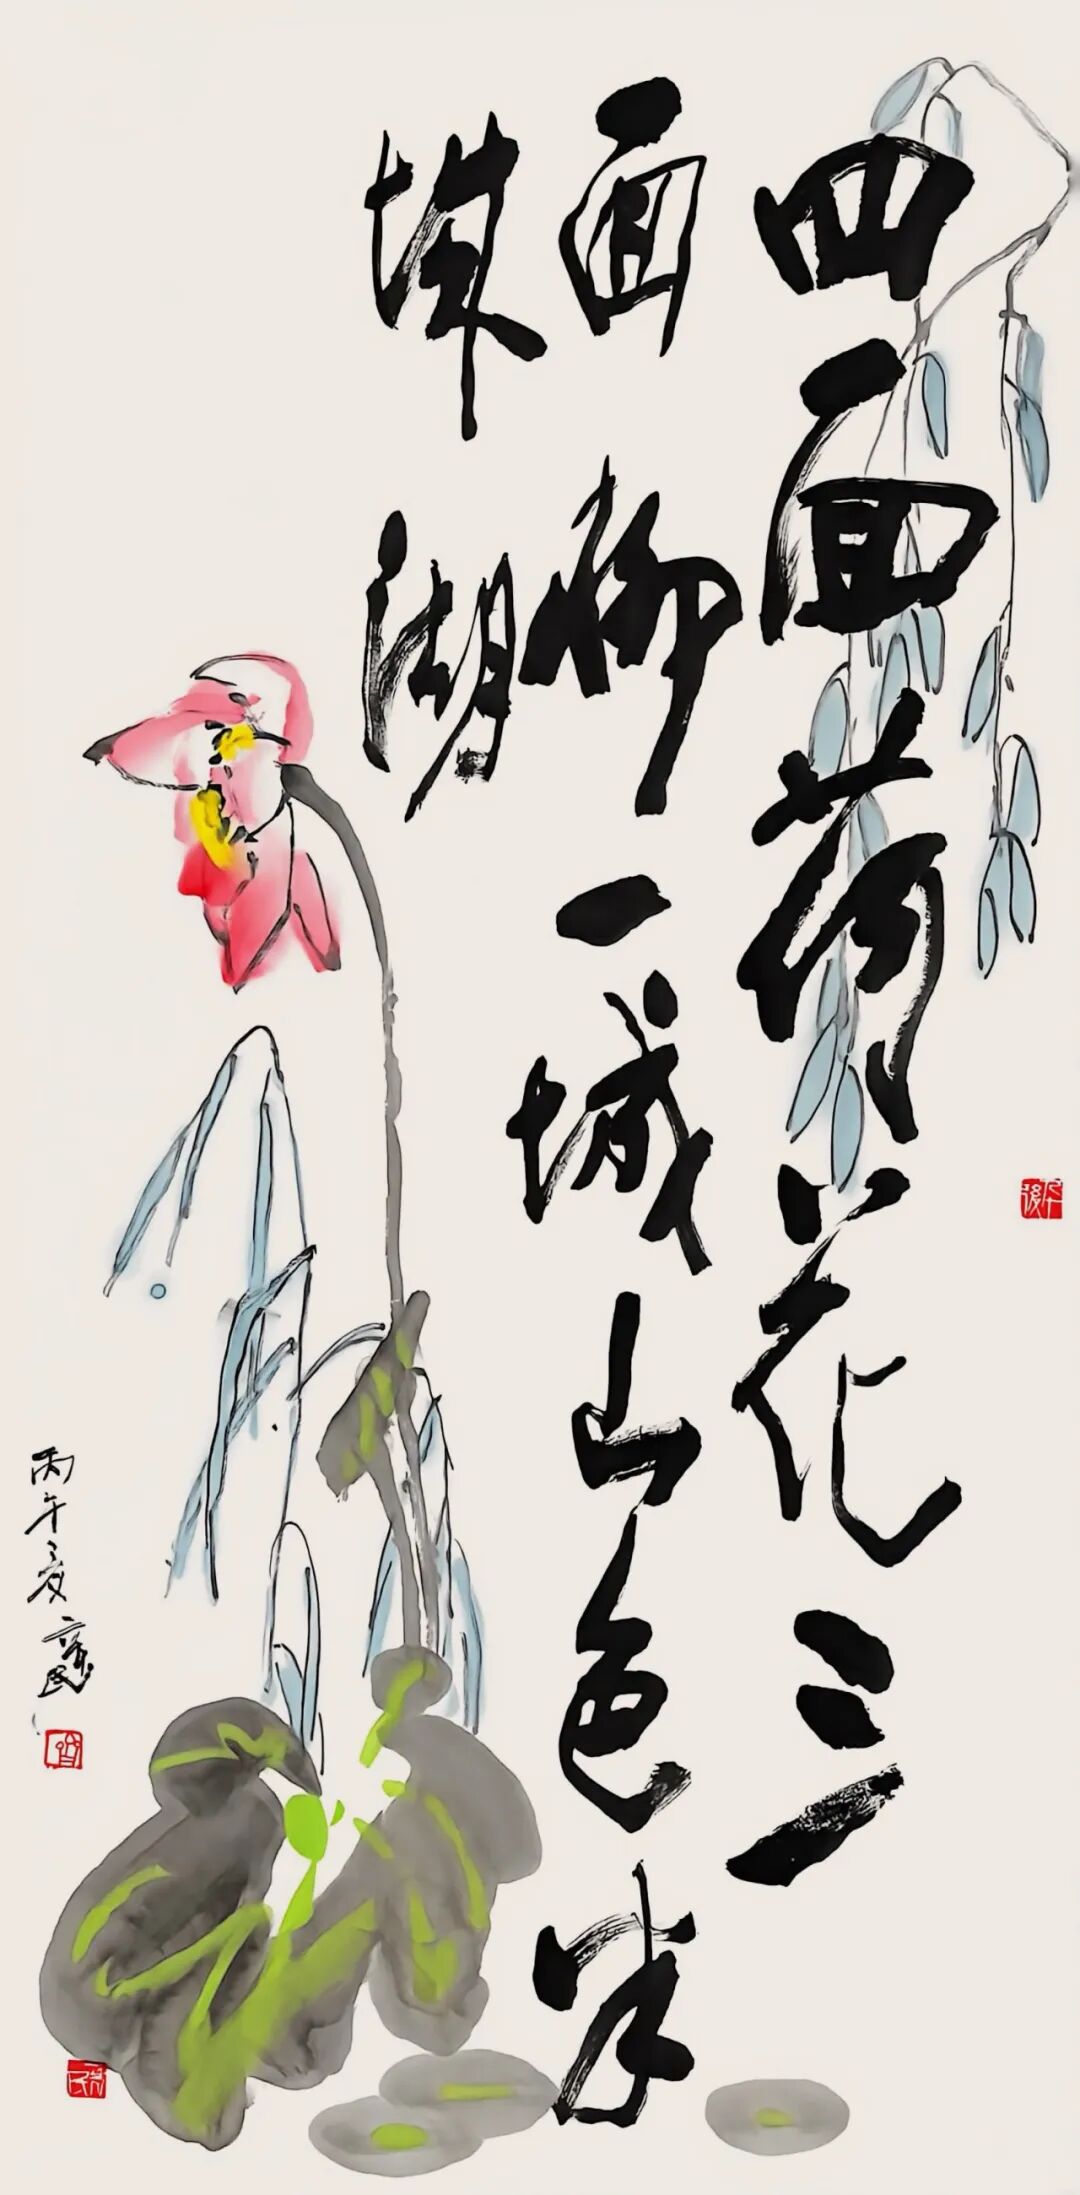 四面荷花三
面柳一城山色半
城湖
丙午夏